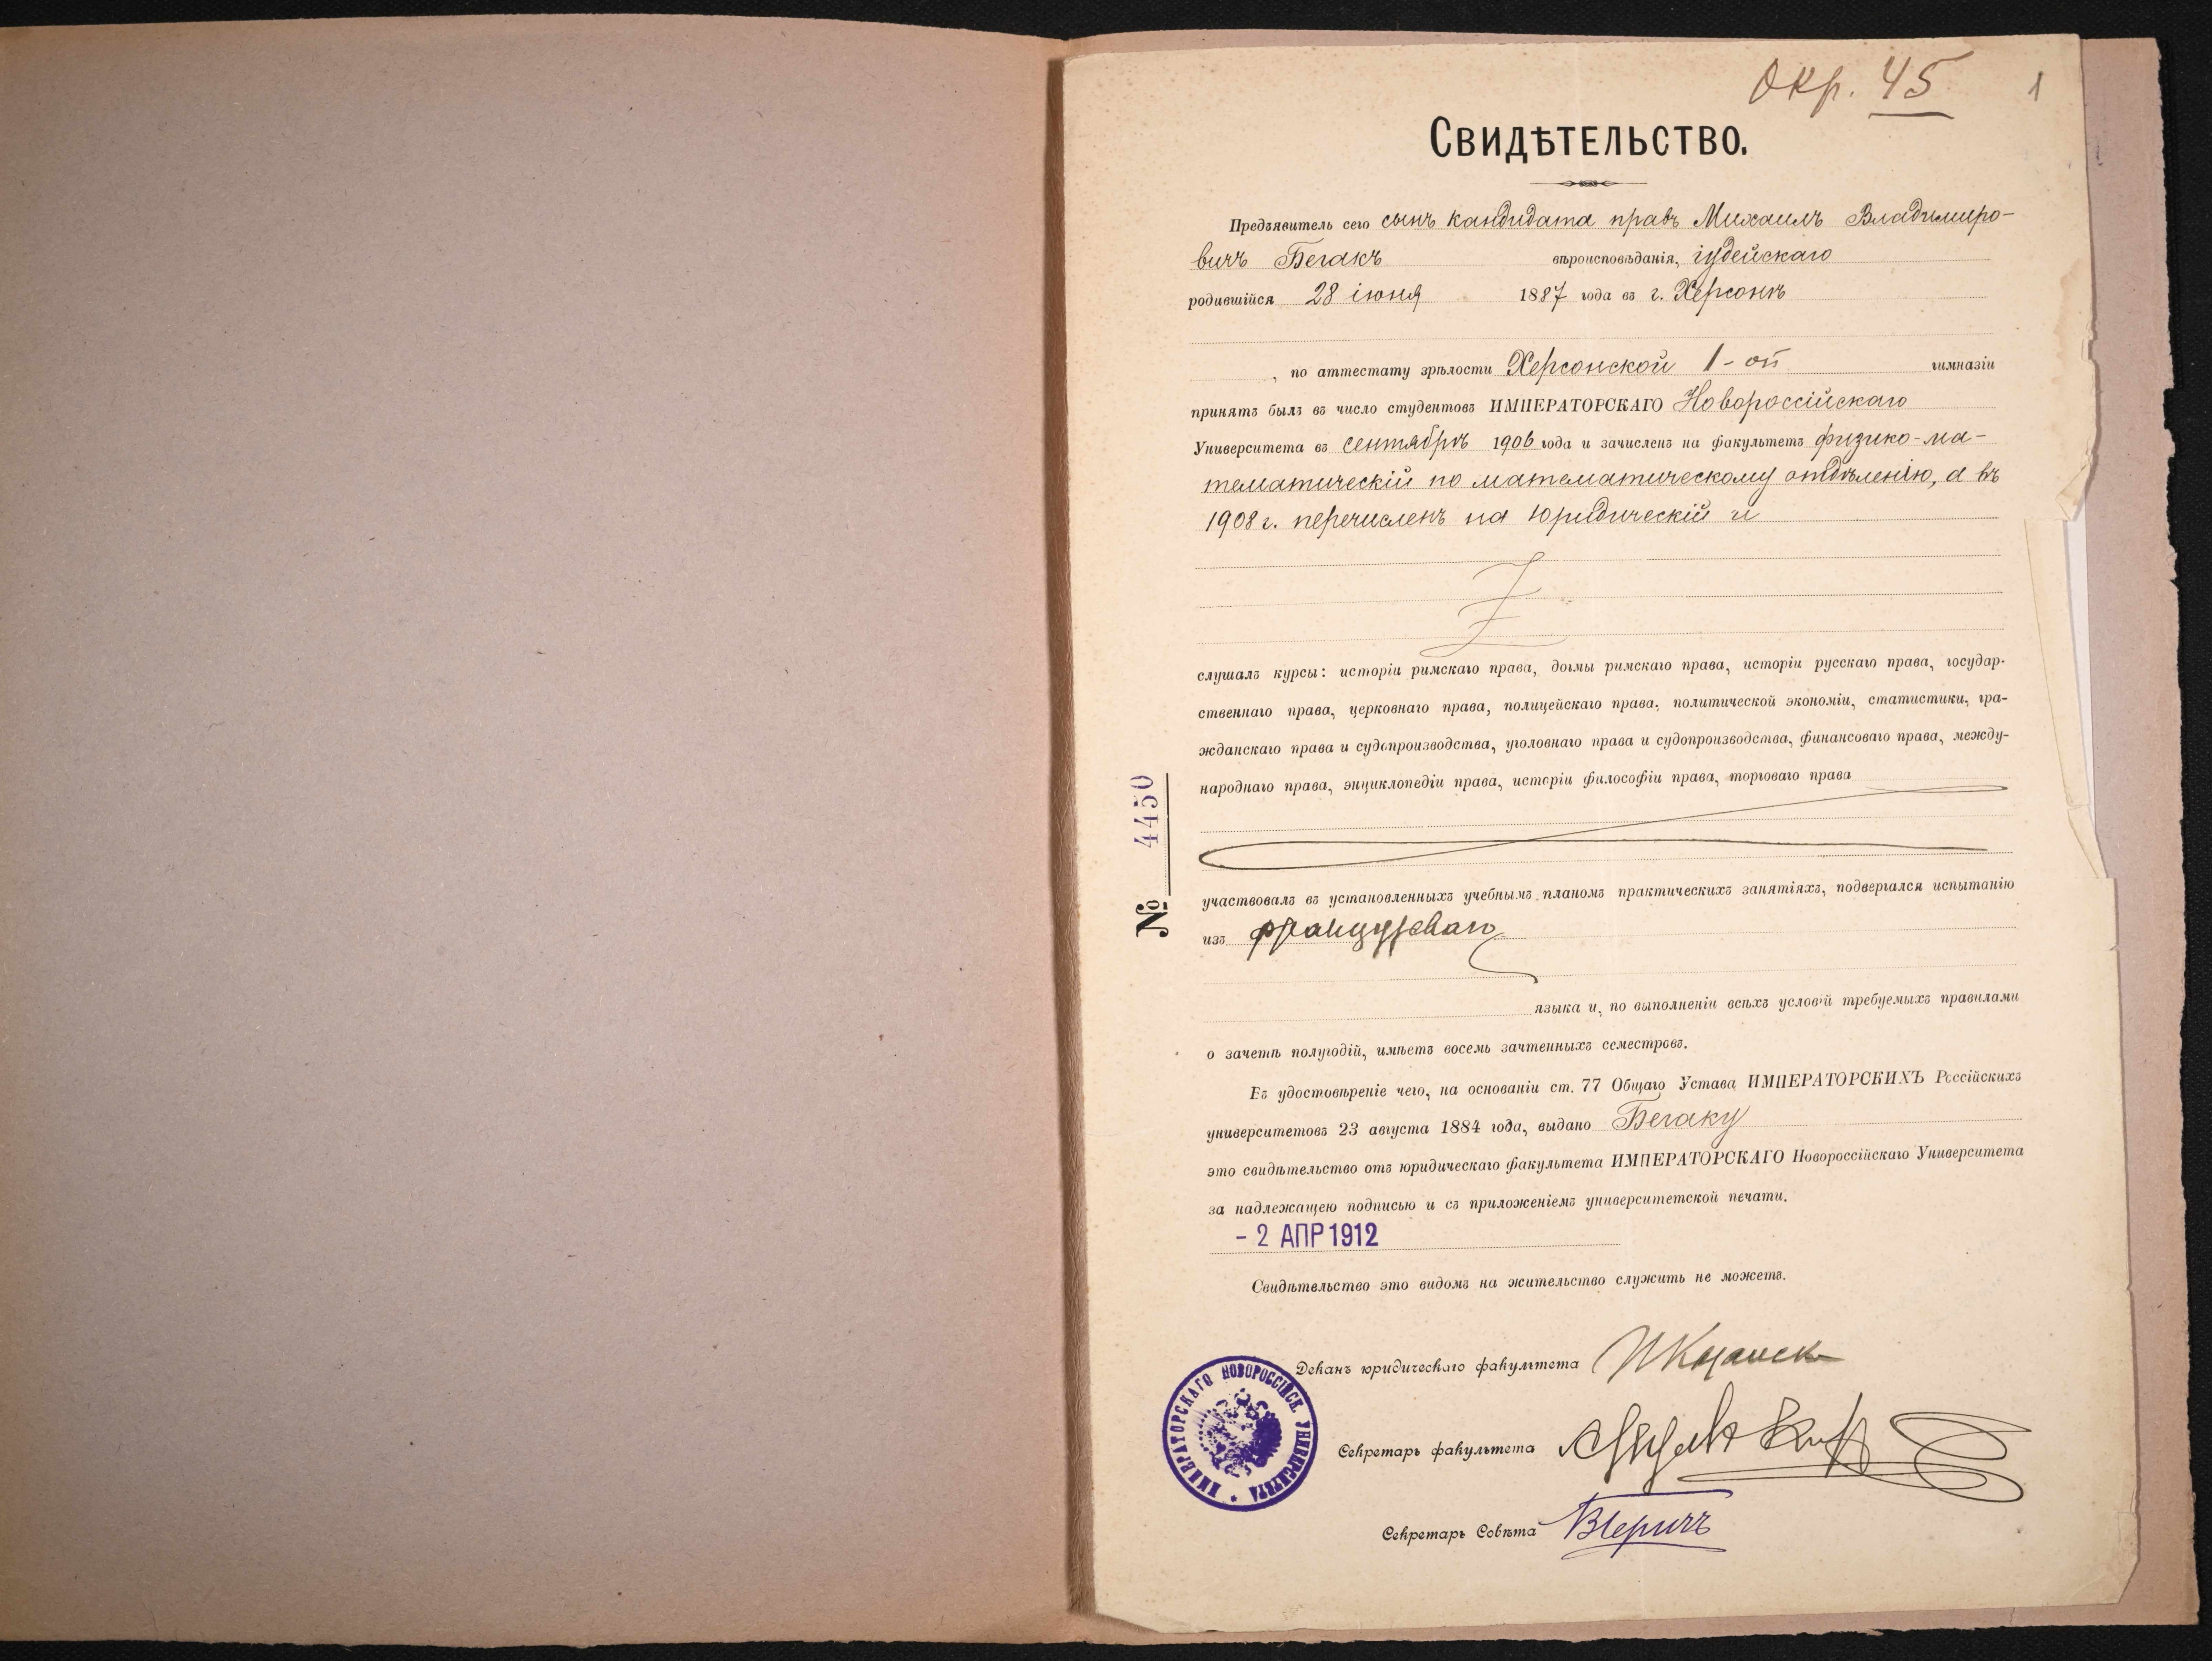 Окр. 45
1
Свидѣтельство.
Предъявитель сего сынъ кандидата правъ Михаилъ Владимиро-
вичъ Бегакъ вѣроисповѣданія, іудейскаго
родившійся 28 іюня 1887 года въ г. Херсонѣ
, по аттестату зрѣлости Херсонской 1-ой гимназіи
принятъ былъ въ число студентовъ ИМПЕРАТОРСКАГО Новороссійскаго
Университета въ сентябрѣ 1906 года и зачисленъ на факультетъ физико-ма-
тематическій по математическому отдѣленію, а въ
1908 г. перечисленъ на юридическій и
слушалъ курсы: исторіи римскаго права, догмы римскаго права, исторіи русскаго права, государ-
ственнаго права, церковнаго права, полицейскаго права, политической экономіи, статистики, гра-
жданскаго права и судопроизводства, уголовнаго права и судопроизводства, финансоваго права, между-
народнаго права, энциклопедіи права, исторіи философіи права, торговаго права
№ 4450
участвовалъ въ установленныхъ учебнымъ планомъ практическихъ занятіяхъ, подвергался испытанію
изъ французскаго
языка и, по выполненіи всѣхъ условій требуемыхъ правилами
о зачетѣ полугодій, имѣетъ восемь зачтенныхъ семестровъ.
Въ удостовѣреніе чего, на основаніи ст. 77 Общаго Устава ИМПЕРАТОРСКИХЪ Россійскихъ
университетовъ 23 августа 1884 года, выдано Бегаку
это свидѣтельство отъ юридическаго факультета ИМПЕРАТОРСКАГО Новороссійскаго Университета
за надлежащею подписью и съ приложеніемъ университетской печати.
- 2 АПР 1912
Свидѣтельство это видомъ на жительство служить не можетъ.
Деканъ юридическаго факультета
Секретарь факультета
Секретарь Совѣта
ИМПЕРАТОРСКАГО НОВОРОССІЙСК. УНИВЕРСИТЕТА *